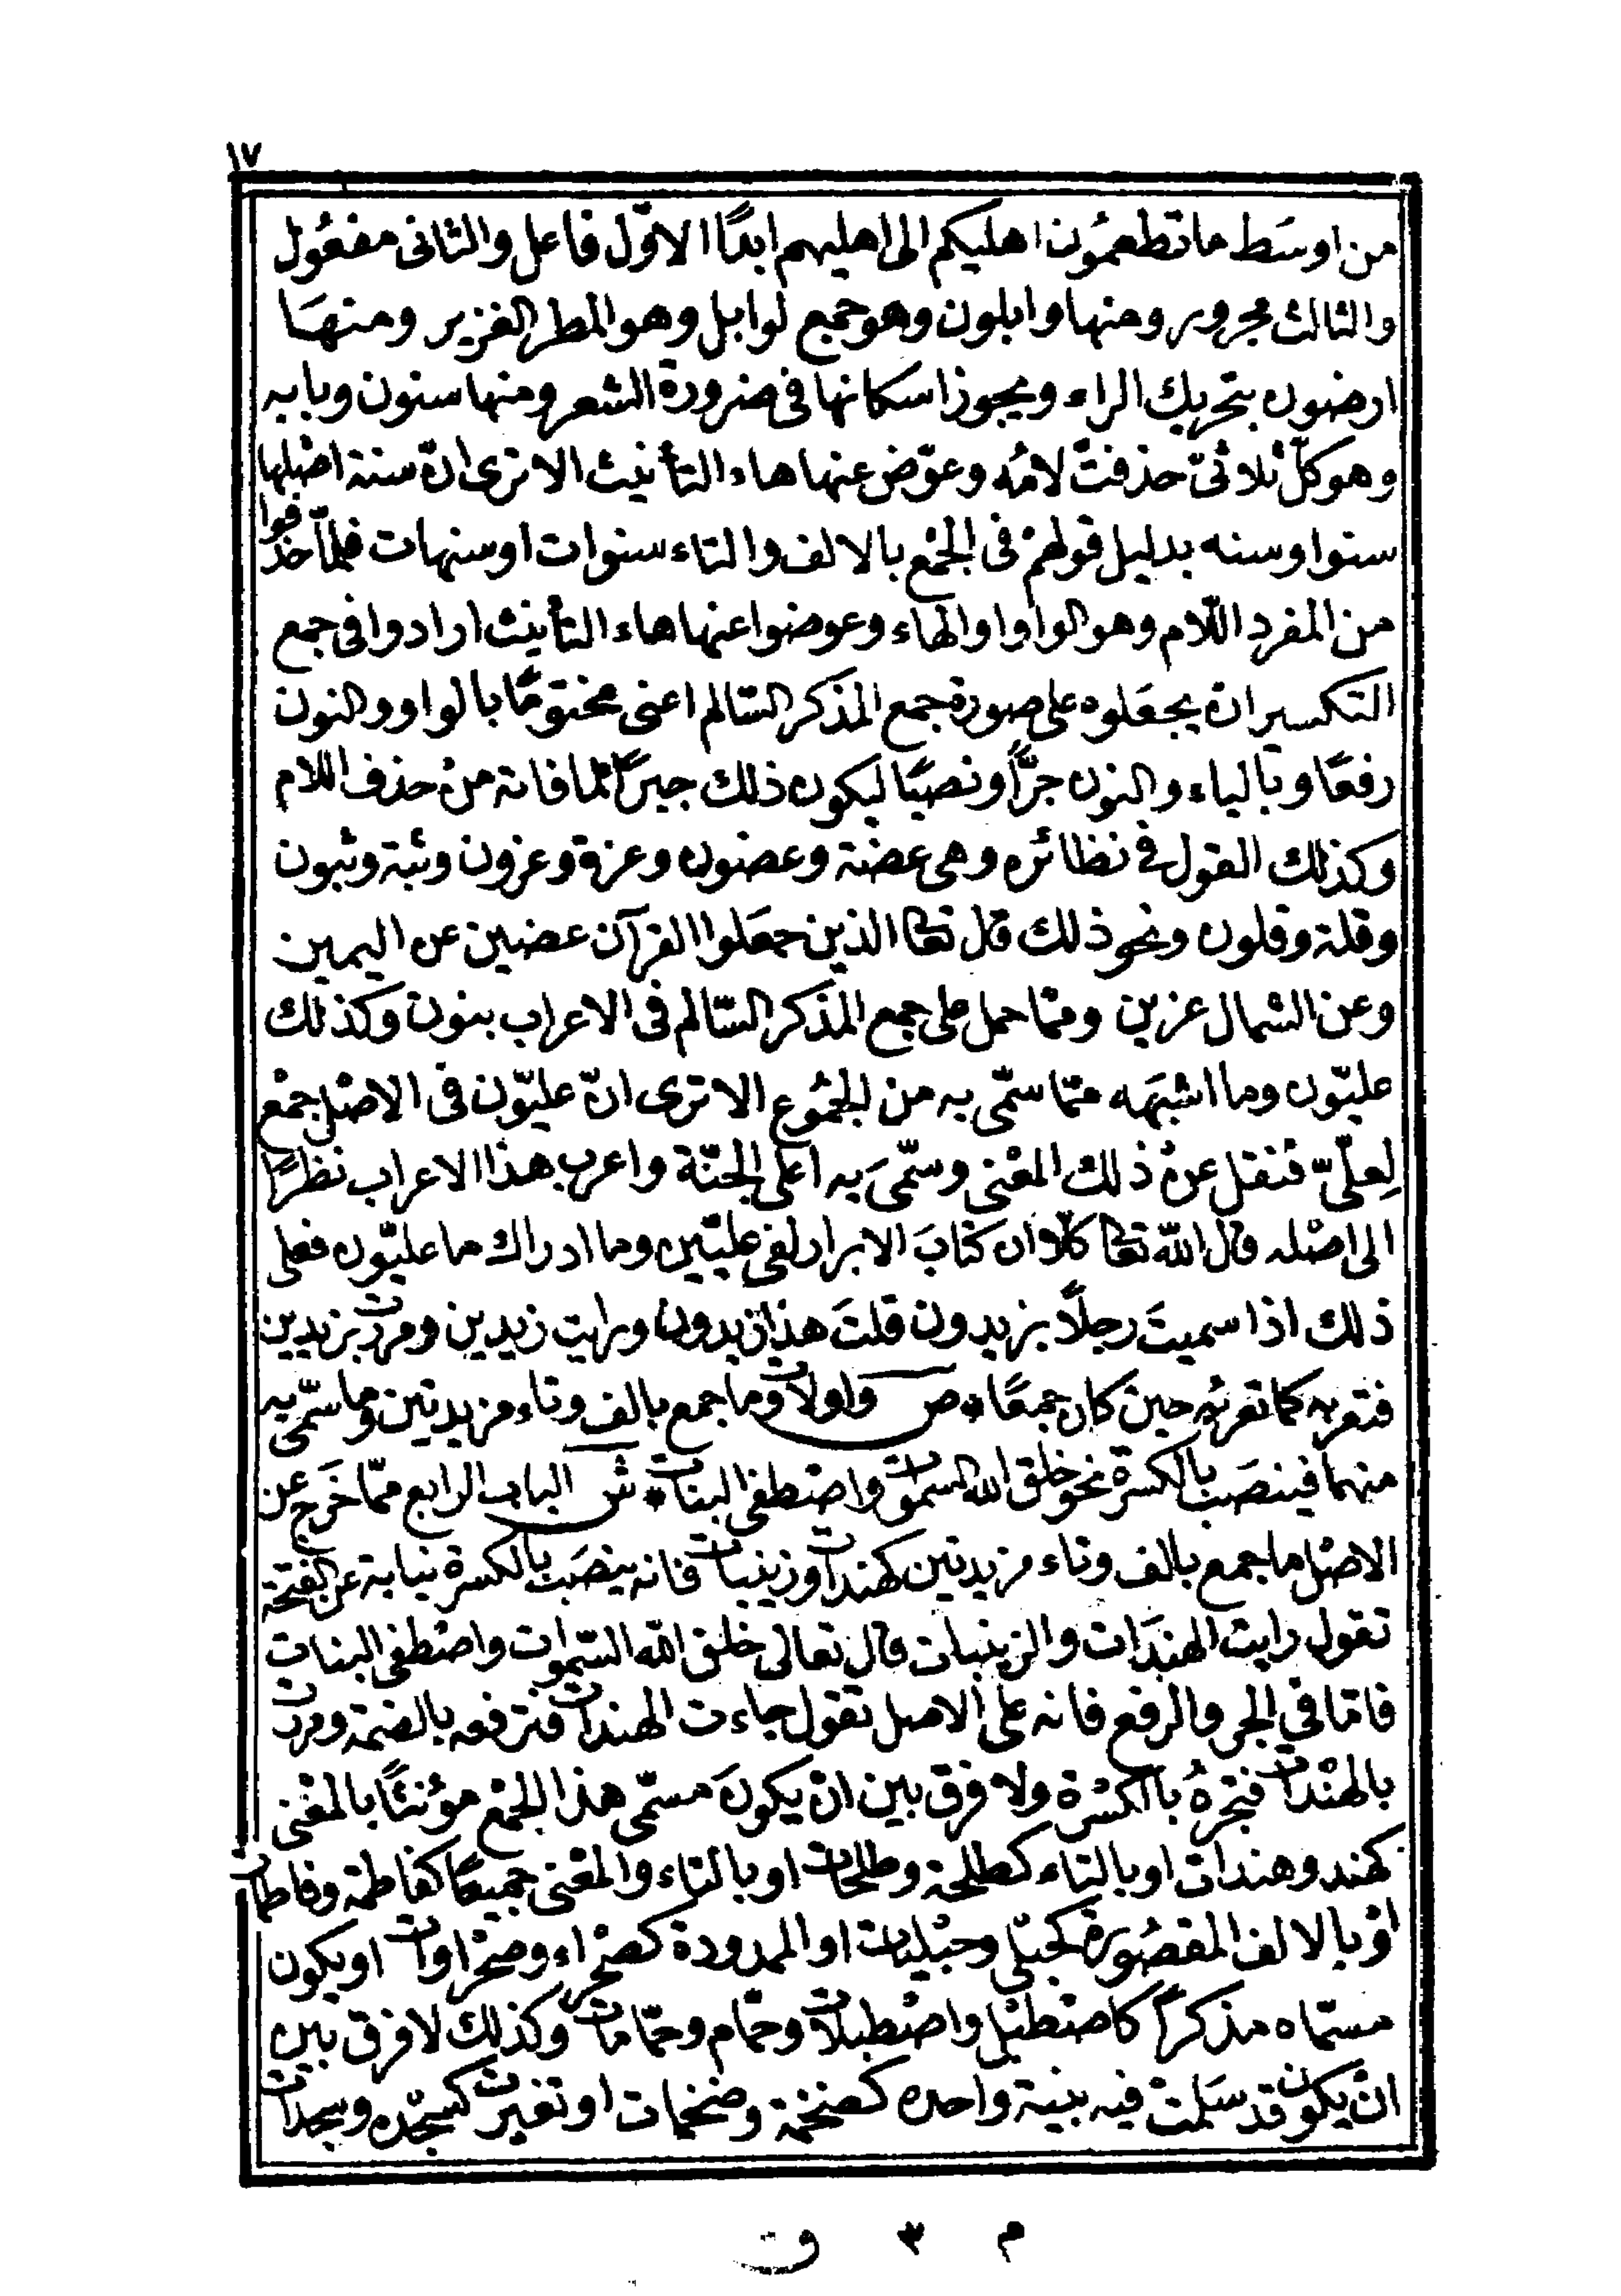 ١٧
من اوسَط ما تطعمُون اهليكم الى اهليهم ابدًا الاوّل فاعل والثانى مفعُول
والثالث مجرور ومنها وابلون وهو جمع لوابل وهو المطر الغزير ومنهَا
ارضون بتحريك الراء ويجوز اسكانها فى ضرورة الشعر ومنها سنون وبابه
وهو كلّ ثلاثىّ حذفتْ لامُه وعوّض عنها هاء التأنيث الا ترى انّ سنة اصْلها
سنو اوسنه بدليل قولهمْ فى الجمْع بالالف والتاء سنوات او سنهات فلمّا حذفوا
من المفرد اللّام وهو الواو او الهاء وعوضوا عنها هاء التأنيث ارادوا فى جمع
التكسير انْ يجعَلوه على صورة جمع المذكر السّالم اعنى مختومًا بالواو والنون
رفعًا وبالياء والنون جرًّا ونصبًا ليكون ذلك جبرًا لما فاته منْ حذف اللام
وكذلك القول فى نظائره وهى عضة وعضون وعزة وعزون وثبة وثبون
وقلة وقلون ونحو ذلك قال تعا الذين جعَلوا القرآن عضين عن اليمين
وعن الشمال عزين وممّا حمل على جمع المذكر السّالم فى الاعراب بنون وكذلك
عليّون وما اشبَهه ممّا سمّى به من الجمُوع الا ترى انّ عليّون فى الاصْل جمْع
لِعلّىّ فنقل عنْ ذلك المعْنى وسمّىَ به اعلى الجنّة واعرب هذا الاعراب نظرًا
الى اصْله قال الله تعا كلّا ان كتابَ الابرار لفى عليّين وما ادراك ما عليّون فعلى
ذلك اذا سميتَ رجلًا بزيدون قلتَ هذا زيدون ورايت زيدين ومررت بزيدين
فتعربه كما تعربُه حين كان جمعًا * ص واولات وما جمع بالف وتاء مزيدتين وما سمّى به
منهما فينصَب بالكسرة نحو خلق الله السّموات واصْطفى البنات * ش الباب الرابع ممّا خَرج عن
الاصْل ما جمع بالف وتاء مزيدتين كهندات وزينبات فانه ينصَب بالكسرة نيابة عن الفتحة
تقول رايت الهندَات والزينبات قال تعالى خلق الله السّموات واصْطفى البنات
فامّا فى الجر والرفع فانه على الاصل تقول جاءت الهندات فترفعه بالضمة ومررت
بالهنْدات فتجرهُ بالكسْرة ولا فرق بين انْ يكونَ مسمّى هذا الجمْع مؤنثًا بالمعْنى
كهند وهندات او بالتاء كطلحة وطلحات او بالتاء والمعْنى جميعًا كفاطمة وفاطمات
اوْ بالالف المقصُورة كحبْلى وحبْليات او الممدودة كصحْراء وصحْراوات او يكون
مسمّاه مذكرًا كاصْطبْل واصْطبلات وحمّام وحمّامات وكذلك لا فرق بين
انْ يكون قد سَلمتْ فيه بنية واحده كضخمْة وضخمات او تغيرت كسجْده وسجدات
م ٣ ق